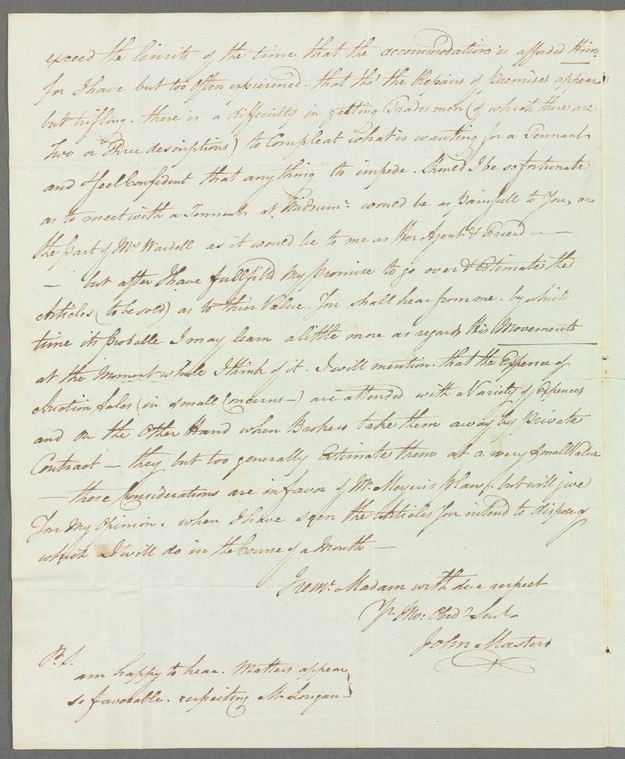 exceed the limits of the time that the accommodation is afforded Him,
for I have but too often experienced. that tho' the Repairs of premises appear
but trifling. there is a difficulty in getting Tradesmen (of which there are
Two or Three descriptions) to Compleat what is wanting for a Tennant.
and I feel Confident that any thing to impede. Should I be so fortunate
as to meet with a Tennant at Midsumr. would be as painfull to You, on
the part of Mrs Wardell as it would be to me as Her Agent & Friend —
— but after I have fullfilld My promise to go over & Estimate the
Articles (to be sold) as to their Value. You shall hear from me. by which
time its probable I may learn a little more as regards His Movements
at the Moment while I think of it. I will mention. that the Expence of
Auction Sales (in small Concerns —) are attended with a Variety of Expences
and on the Other Hand when Brokers take them away by private
Contract — they but too generally Estimate them at a very small Value
— these Considerations are in favor of Mr plan, but will give
You My Opinion. when I have seen the Articles You intend to dispose of
which I will do in the Course of a Month —
I remn. Madam with due respect
Yr Mo: Obedt Servt
John Masters
P.S.
am happy to hear. Matters appear
so favorable. respecting Mr Longan